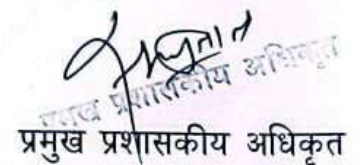 प्रमुख प्रशासकीय अधिकृत
प्रमुख प्रशासकीय अधिकृत